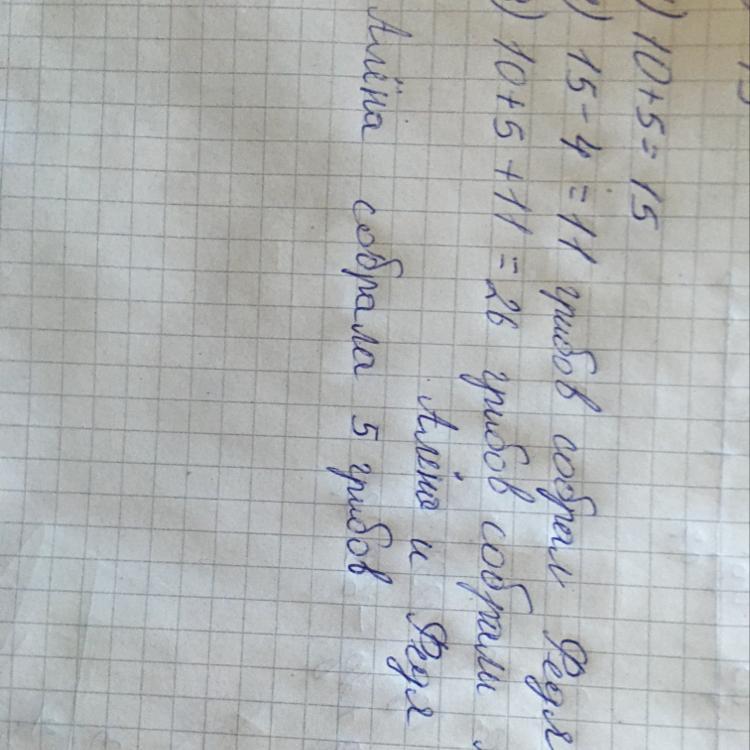 1) 10+5=15
2) 15-4=11 грибов собрал Федя
3) 10+5+11=26 грибов собрали
Алёна и Федя
Алёна собрала 5 грибов